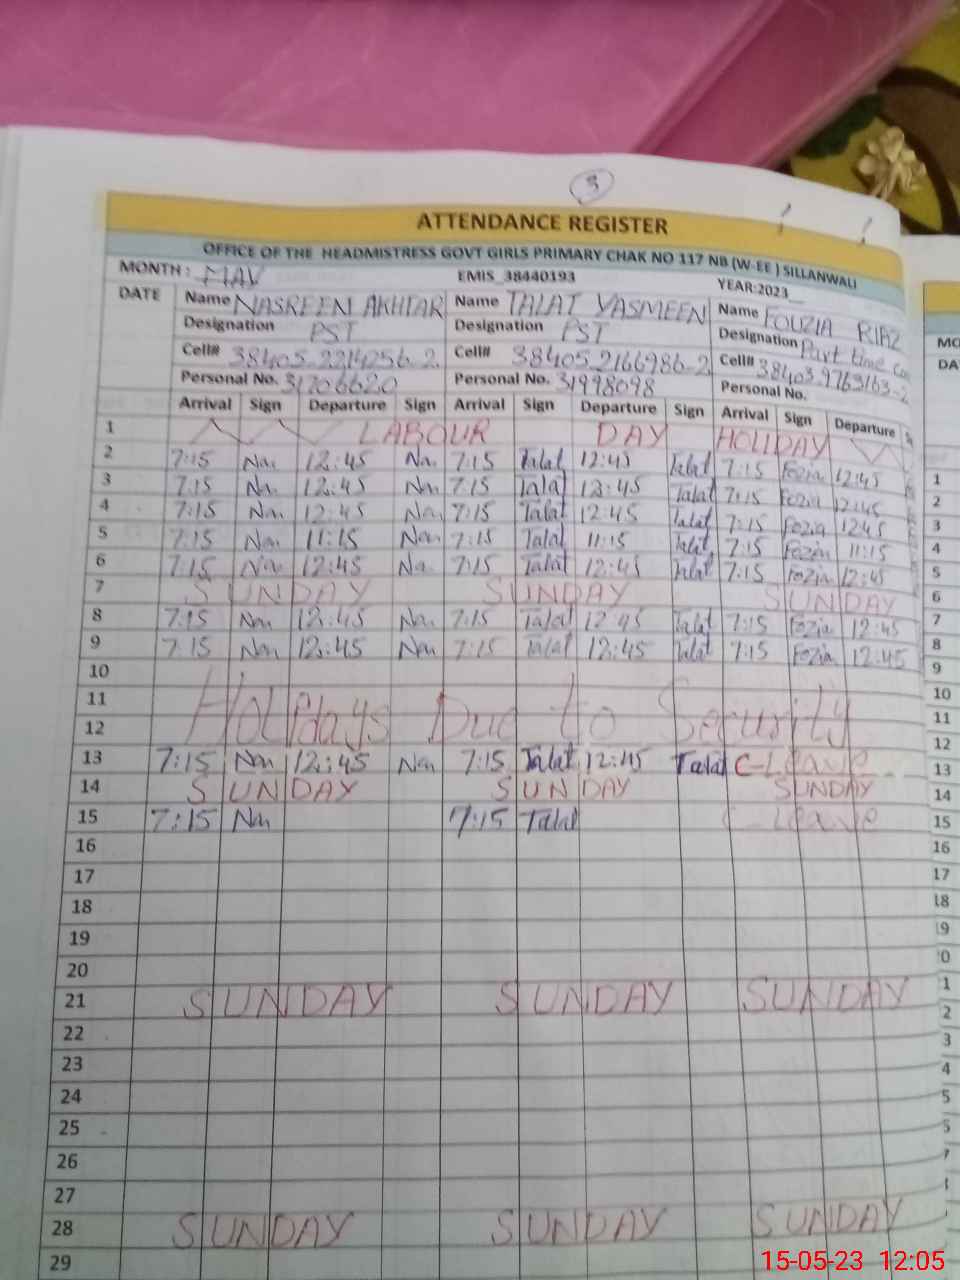 3
ATTENDANCE REGISTER
OFFICE OF THE HEADMISTRESS GOVT GIRLS PRIMARY CHAK NO 117 NB (W-EE ) SILLANWALI
MONTH : MAY EMIS_38440193 YEAR:2023
DATE Name NASREEN AKHTAR Name TALAT YASMEEN Name FOUZIA RIAZ
Designation PST Designation PST Designation Part time
Cell# 38405-2214256-2 Cell# 38405-2166986-2 Cell# 38403-9763163-2
Personal No. 31706620 Personal No. 31998098 Personal No.
Arrival Sign Departure Sign Arrival Sign Departure Sign Arrival Sign Departure
1 LABOUR DAY HOLIDAY
2 7:15 Nan 12:45 Nan 7:15 Talat 12:45 Talat 7:15 Fozia 12:45
3 7:15 Nan 12:45 Nan 7:15 Talat 12:45 Talat 7:15 Fozia 12:45
4 7:15 Nan 12:45 Nan 7:15 Talat 12:45 Talat 7:15 Fozia 12:45
5 7:15 Nan 11:15 Nan 7:15 Talat 11:15 Talat 7:15 Fozia 11:15
6 7:15 Nan 12:45 Nan 7:15 Talat 12:45 Talat 7:15 Fozia 12:45
7 SUNDAY SUNDAY SUNDAY
8 7:15 Nan 12:45 Nan 7:15 Talat 12:45 Talat 7:15 Fozia 12:45
9 7:15 Nan 12:45 Nan 7:15 Talat 12:45 Talat 7:15 Fozia 12:45
10
11 Holidays Due to Security
12
13 7:15 Nan 12:45 Nan 7:15 Talat 12:45 Talat C-Leave
14 SUNDAY SUNDAY SUNDAY
15 7:15 Nan 7:15 Talat C-Leave
16
17
18
19
20
21 SUNDAY SUNDAY SUNDAY
22
23
24
25
26
27
28 SUNDAY SUNDAY SUNDAY
29
MO
DA
1
2
3
4
5
6
7
8
9
10
11
12
13
14
15
16
17
18
15-05-23 12:05